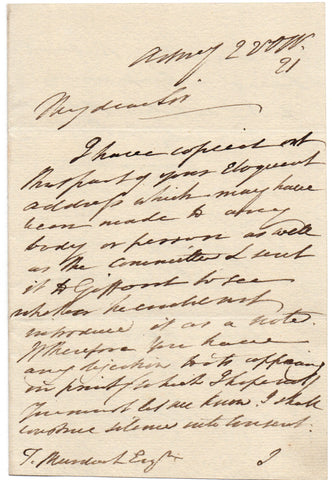 2 Octr.
21
My dear Sir
I have copied out
that part of your Eloquent
address which may have
been made to any
body or person as well
as the committee & sent
it to Gifford to see
whether he could not
introduce it as a note.
Wherefore you have
any objection to its appearing
in print (which I hope not)
You must let me know. I shall
construe silence into Consent.
T. Murdoch Esqre